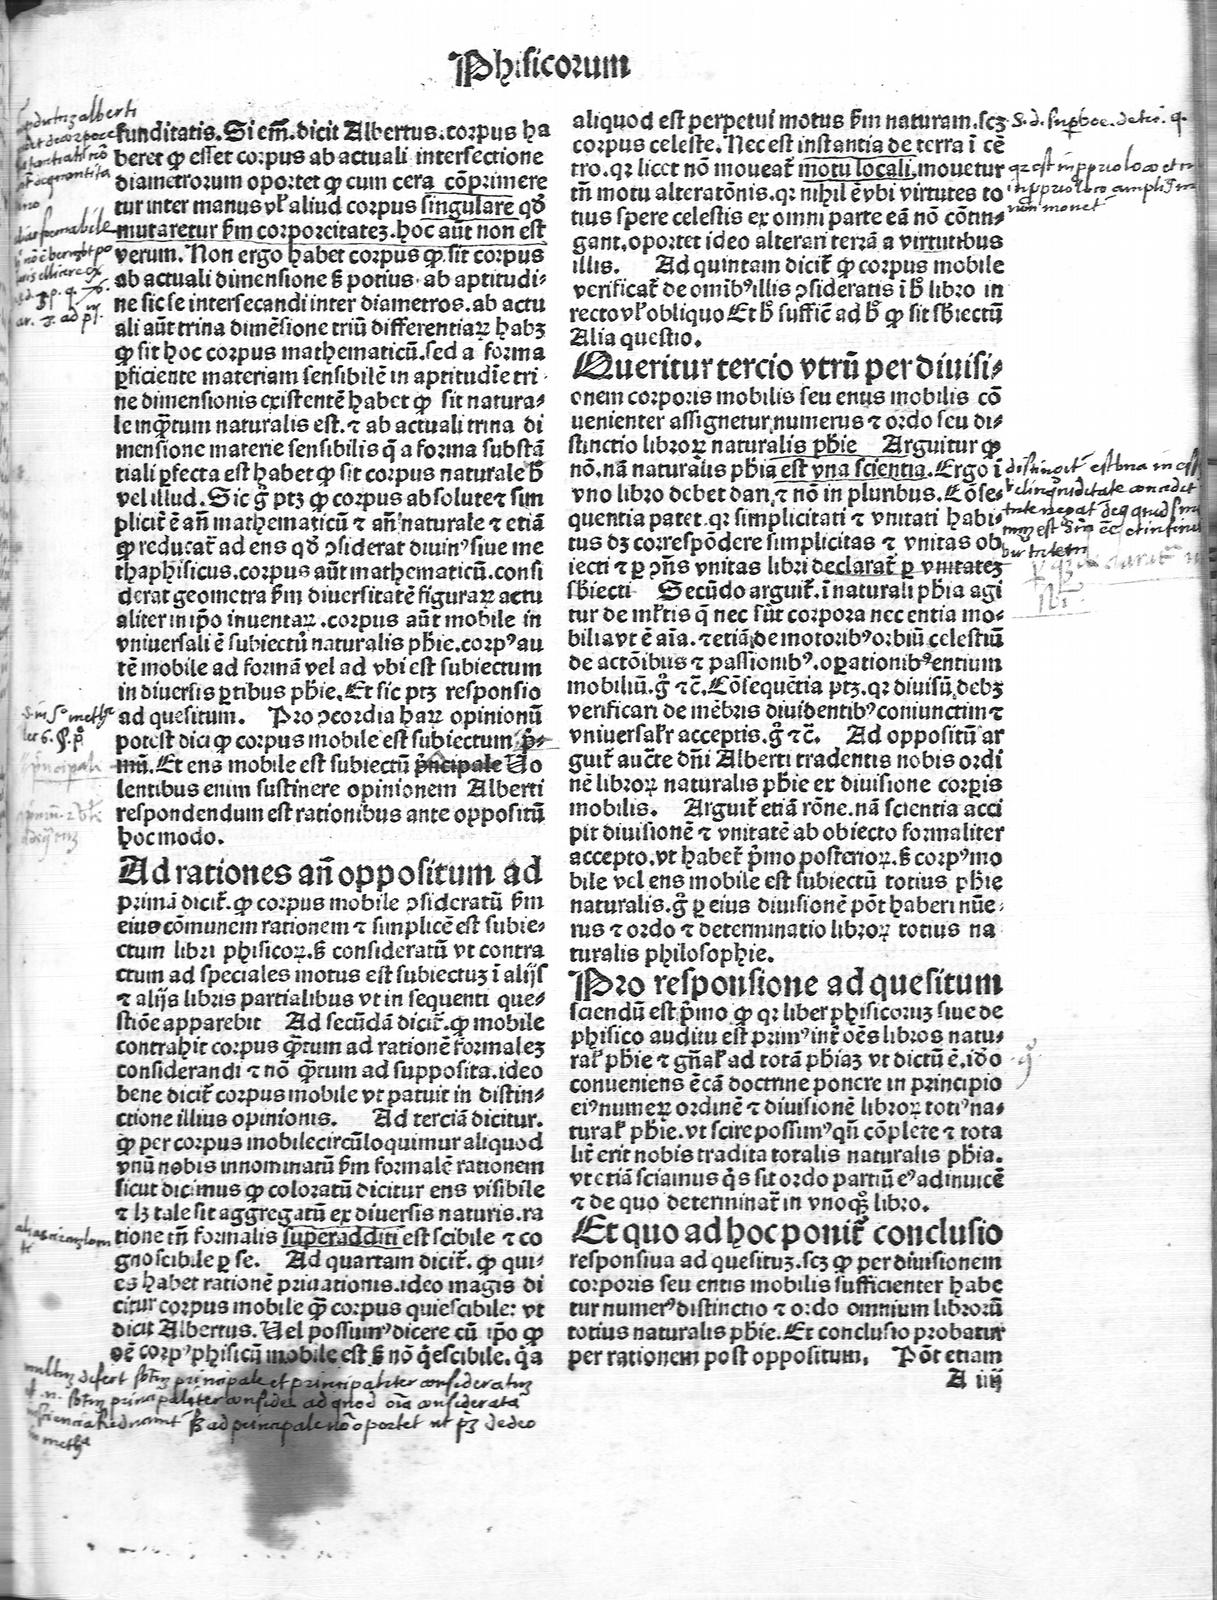 Phisicorum
funditatis. Si em̄. dicit Albertus. corpus ha
beret ꝙ esset corpus ab actuali intersectione
diametrorum oportet ꝙ cum cera cōprimere
tur inter manus vľ aliud corpus singulare qđ
mutaretur ẜm corporeitateꝫ. hoc aūt non est
verum. Non ergo habet corpus ꝙ sit corpus
ab actuali dimensione ẜ potius ab aptitudi⸗
ne sic se intersecandi inter diametros. ab actu
ali aūt trina dimēsione triū differentiaꝝ habꝫ
ꝙ sit hoc corpus mathematicū. sed a forma
ꝑficiente materiam sensibilē in aptitudīe tri
ne dimensionis existentē habet ꝙ sit natura⸗
le inꝙ̄tum naturalis est. ⁊ ab actuali trina di
mensione materie sensibilis q̄ a forma substā
tiali ꝑfecta est habet ꝙ sit corpus naturale ħ
vel illud. Sic g̊ ptꝫ ꝙ corpus absolute ⁊ sim
pliciť ē an̄ mathematicū ⁊ an̄ naturale ⁊ etiā
ꝙ reducať ad ens qđ ꝯsiderat diuinꝰ siue me
thaphisicus. corpus aūt mathematicū. consi
derat geometra ẜm diuersitatē figuraꝝ actu
aliter in ip̄o inuentaꝝ. corpus aūt mobile in
vniuersali ē subiectū naturalis ph̄ie. corpꝰ au
tē mobile ad formā vel ad vbi est subiectum
in diuersis ꝑtibus ph̄ie. Et sic ptꝫ responsio
ad quesitum. Pro ꝯcordia haꝝ opinionū
potest dici ꝙ corpus mobile est subiectum p̄⸗
mū. Et ens mobile est subiectū p̄ncipale Vo
lentibus enim sustinere opinionem Alberti
respondendum est rationibus ante oppositū
hoc modo.
Ad rationes an̄ oppositum ad
primā diciť. ꝙ corpus mobile ꝯsideratū ẜm
eius cōmunem rationem ⁊ simplicē est subie⸗
ctum libri phisicoꝝ. ẜ consideratū vt contra
ctum ad speciales motus est subiectuꝫ ī alijs
⁊ alijs libris partialibus vt in sequenti que⸗
stiōe apparebit Ad secūdā diciť. ꝙ mobile
contrahit corpus ꝙ̄tum ad rationē formaleꝫ
considerandi ⁊ nō ꝙ̄tum ad supposita. ideo
bene diciť corpus mobile vt patuit in distin⸗
ctione illius opinionis. Ad terciā dicitur.
ꝙ per corpus mobile circūloquimur aliquod
vnū nobis innominatū ẜm formalē rationem
sicut dicimus ꝙ coloratū dicitur ens visibile
⁊ lꝫ tale sit aggregatū ex diuersis naturis. ra
tione tn̄ formalis superadditi est scibile ⁊ co
gnoscibile ꝑ se. Ad quartam diciť. ꝙ qui⸗
es habet rationē priuationis. ideo magis di
citur corpus mobile ꝙ̄ corpus quiescibile: vt
dicit Albertus. Uel possumꝰ dicere cū ip̄o ꝙ
oē corpꝰ phisicū mobile est ẜ nō q̇escibile. q̇a
multum differt principale et principaliter consideratum
principaliter ad quod omnia considerata
ad principale non oportet ut
aliquod est perpetui motus ẜm naturam. scꝫ
corpus celeste. Nec est instantia de terra ī cē
tro. qꝛ licet nō moueať motu locali. mouetur
tn̄ motu alteratōnis. qꝛ nihil ē vbi virtutes to
tius spere celestis ex omni parte eā nō cōtin⸗
gant. oportet ideo alterari terrā a virtutibus
illis. Ad quintam diciť ꝙ corpus mobile
verificať de omībꝰ illis ꝯsideratis ī ħ libro in
recto vľ obliquo Et ħ suffic̄ ad ħ ꝙ sit sb̄iectū
Alia questio.
Queritur tercio vtrū per diuisi⸗
onem corporis mobilis seu entis mobilis cō
uenienter assignetur numerus ⁊ ordo seu di⸗
stinctio libroꝝ naturalis ph̄ie Arguitur ꝙ
nō. nā naturalis ph̄ia est vna scientia. Ergo ī
vno libro debet dari. ⁊ nō in pluribus. Cōse⸗
quentia patet. qꝛ simplicitati ⁊ vnitati habi⸗
tus dꝫ correspōdere simplicitas ⁊ vnitas ob
iecti ⁊ ꝑ ꝯn̄s vnitas libri declarať ꝑ vnitateꝫ
sb̄iecti Secūdo arguiť. ī naturali ph̄ia agi
tur de mľtis q̄ nec sūt corpora nec entia mo⸗
bilia vt ē aīa. ⁊ etiā de motoribꝰ orbiū celestiū
de actōibus ⁊ passionibꝰ. oꝑationibꝰ entium
mobiliū. g̊ ⁊c̄. Cōsequētia ptꝫ. qꝛ diuisū debꝫ
verificari de mēbris diuidentibꝰ coniunctim ⁊
vniuersaľr acceptis. g̊ ⁊c̄. Ad oppositū ar
guiť auct̄e dn̄i Alberti tradentis nobis ordi
nē libroꝝ naturalis ph̄ie ex diuisione corꝑis
mobilis. Arguiť etiā rōne. nā scientia acci
pit diuisionē ⁊ vnitatē ab obiecto formaliter
accepto. vt habeť p̄mo posterioꝝ. ẜ corpꝰ mo
bile vel ens mobile est subiectū totius ph̄ie
naturalis. g̊ ꝑ eius diuisionē pōt haberi nūe⸗
rus ⁊ ordo ⁊ determinatio libroꝝ totius na
turalis philosophie.
Pro responsione ad quesitum
sciendū est p̄mo ꝙ qꝛ liber phisicoruꝫ siue de
phisico auditu est primꝰ int̄ oēs libros natu⸗
raľ ph̄ie ⁊ gn̄aľ ad totā ph̄iaꝫ vt dictū ē. iđo
conueniens ē cā doctrine ponere in principio
eiꝰ numeꝝ ordinē ⁊ diuisionē libroꝝ totiꝰ na⸗
turaľ ph̄ie. vt scire possimꝰ qn̄ cōplete ⁊ tota
liť erit nobis tradita totalis naturalis ph̄ia.
vt etiā sciamus q̇s sit ordo partiū eꝰ adinuicē
⁊ de quo determinať in vnoqꝫ libro.
Et quo ad hoc poniť conclusio
responsiua ad quesituꝫ. scꝫ ꝙ per diuisionem
corporis seu entis mobilis sufficienter habe
tur numerꝰ distinctio ⁊ ordo omnium librorū
totius naturalis ph̄ie. Et conclusio probatur
per rationem post oppositum. Pōt etiam
A iiij